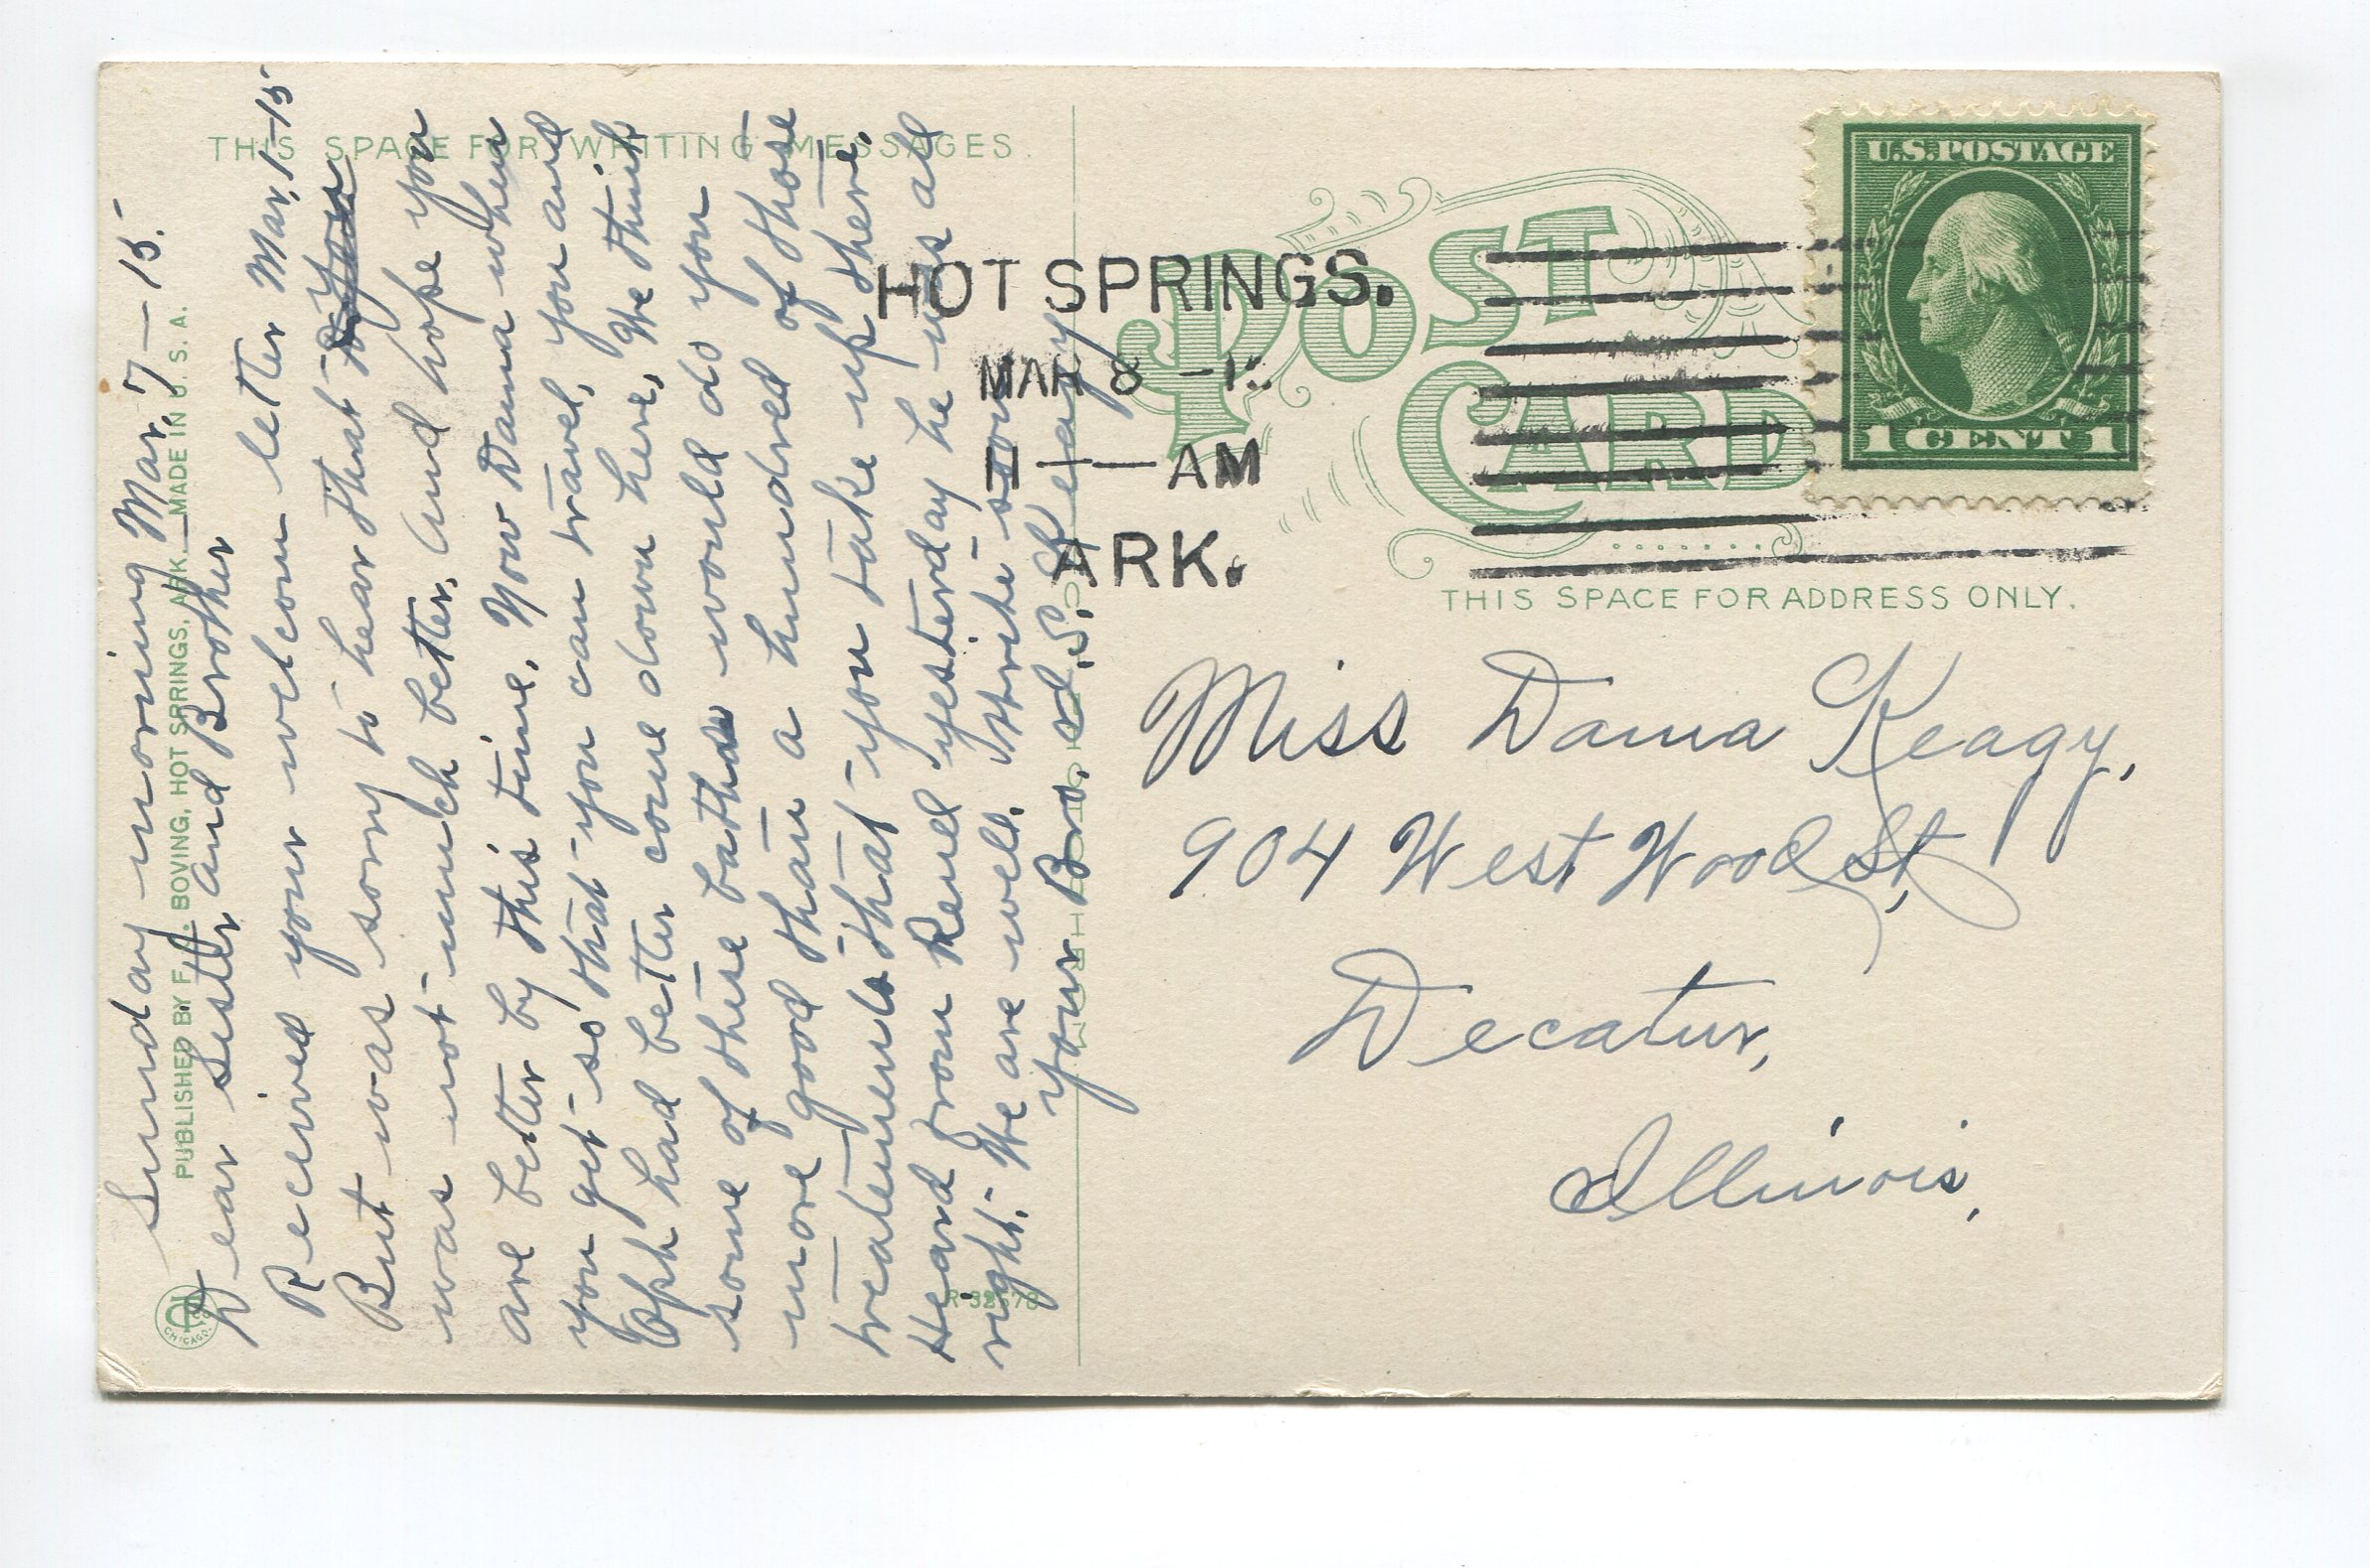 THIS SPACE FOR WRITING MESSAGES.
Sunday morning Mar, 7—15.
PUBLISHED BY F. BOVING, HOT SPRINGS, ARK. MADE IN U.S.A.
Dear Sister and Brother
Received your welcom letter Mar, 1-15
But was sorry to hear that
was not much better, and hope you
are better by this time. Now Dama when
you get so that you can travel, you and
Oph had better come down here, We think
some of these baths would do you
more good than a hundred of those
treatments that you take up there.
Heard from Revel yesterday he was all
right. We are well. Write soon
your Bro, d. S. Keagy
CHICAGO
HOT SPRINGS.
MAR 8 -15
AM
ARK.
POST
CARD
U.S.POSTAGE
1 CENT 1
THIS SPACE FOR ADDRESS ONLY.
Miss Dama Keagy,
904 West Wood St,
Decatur,
Illinois,